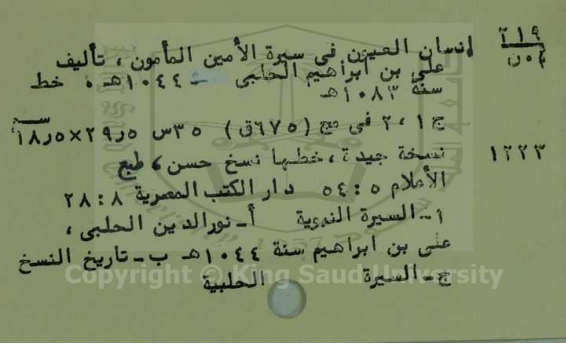 ٢١٩ إنسان العيون في سيرة الأمين المأمون، تأليف
علي بن ابراهيم الحلبي - ١٠٤٤هـ. خط
سنة ١٠٨٣هـ
ج١، ٢ في مج (٦٧٥ق) ٣٥س ٢٩٫٥×١٨٫٥سم
١٢٢٣ نسخة جيدة، خطها نسخ حسن، طبع
الأعلام ٥:٥٤ دار الكتب المصرية ٨:٢٨
١- السيرة النبوية أ- نورالدين الحلبي،
علي بن ابراهيم سنة ١٠٤٤هـ ب- تاريخ النسخ
ج- السيرة الحلبية
Copyright © King Saud University
1957